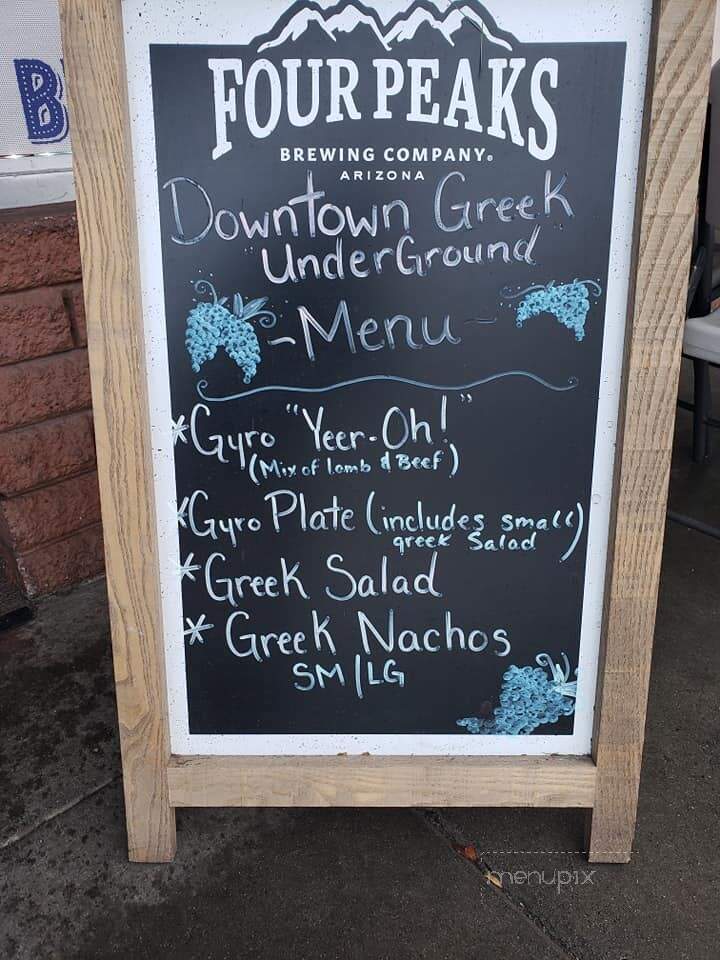 B
FOUR PEAKS
BREWING COMPANY®
ARIZONA
Downtown Greek
"UnderGround"
-Menu-
*Gyro "Yeer-Oh!"
(Mix of lamb & Beef)
*Gyro Plate (includes small
greek Salad)
*Greek Salad
* Greek Nachos
SM|LG
menupix